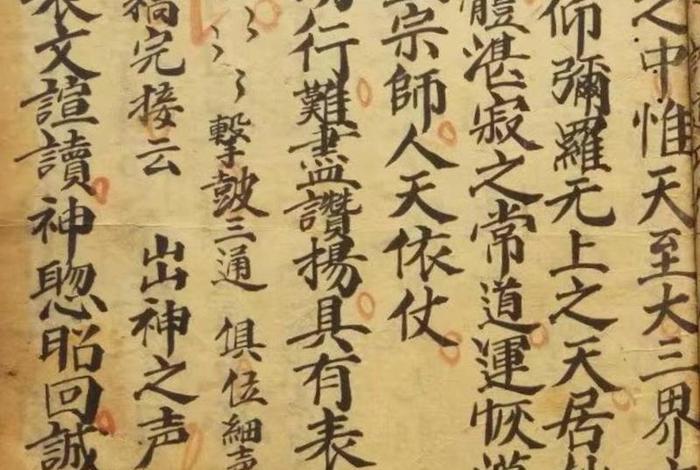 之中惟天至大三界
仰彌羅无上之天居
體湛寂之常道運恢漠
宗師人天依仗
行難盡讚揚具有表
擊皷三通 俱位細声
稿完接云 出山神之声
表文諠讀神聰昭回誠